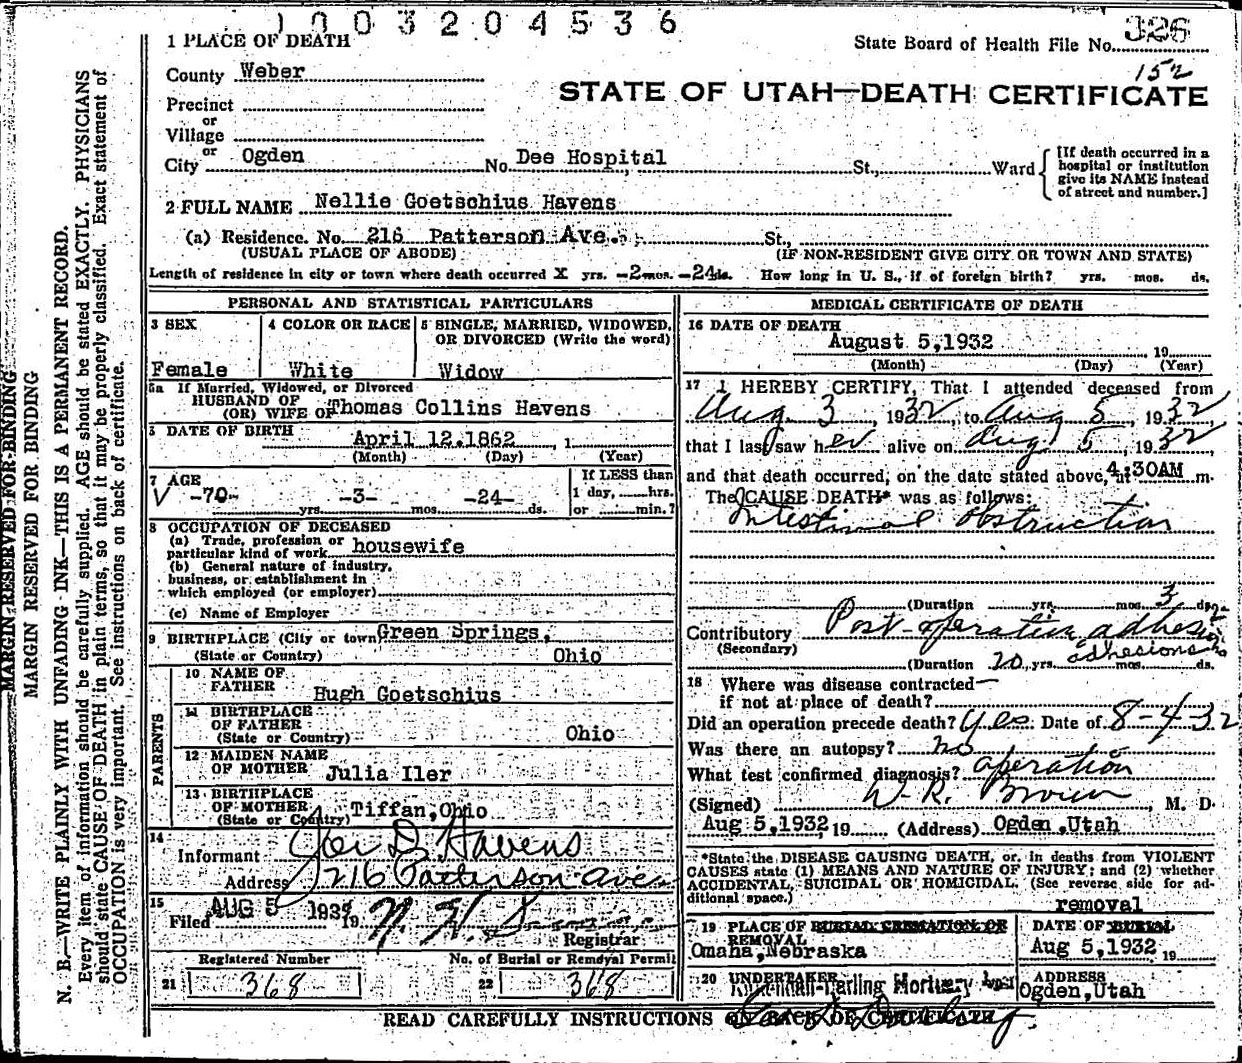 1003204536
1 PLACE OF DEATH
State Board of Health File No. 326
152
County Weber
STATE OF UTAH—DEATH CERTIFICATE
Precinct
or
Village
or
City Ogden No. Dee Hospital St., Ward
[If death occurred in a
hospital or institution
give its NAME instead
of street and number.]
2 FULL NAME Nellie Goetschius Havens
(a) Residence. No. 216 Patterson Ave. St.,
(USUAL PLACE OF ABODE) (IF NON-RESIDENT GIVE CITY OR TOWN AND STATE)
Length of residence in city or town where death occurred X yrs. -2 mos. -24 ds. How long in U. S., if of foreign birth? yrs. mos. ds.
PERSONAL AND STATISTICAL PARTICULARS
3 SEX
Female
4 COLOR OR RACE
White
5 SINGLE, MARRIED, WIDOWED,
OR DIVORCED (Write the word)
Widow
5a If Married, Widowed, or Divorced
HUSBAND OF
(OR) WIFE OF Thomas Collins Havens
DATE OF BIRTH
April 12.1862 1
(Month) (Day) (Year)
7 AGE
-70- yrs. -3- mos. -24- ds.
If LESS than
1 day, hrs.
or min.?
8 OCCUPATION OF DECEASED
(a) Trade, profession or
particular kind of work housewife
(b) General nature of industry,
business, or establishment in
which employed (or employer)
(c) Name of Employer
9 BIRTHPLACE (City or town) Green Springs,
(State or Country) Ohio
PARENTS
10 NAME OF
FATHER Hugh Goetschius
11 BIRTHPLACE
OF FATHER
(State or Country) Ohio
12 MAIDEN NAME
OF MOTHER Julia Iler
13 BIRTHPLACE
OF MOTHER
(State or Country) Tiffan, Ohio
14
Informant D. Havens
Address 216 Patterson Ave
15
Filed AUG 5 1932 19 N. H.
Registrar
Registered Number
21 368
No. of Burial or Removal Permit
22 368
MEDICAL CERTIFICATE OF DEATH
16 DATE OF DEATH
August 5,1932 19
(Month) (Day) (Year)
17 I HEREBY CERTIFY, That I attended deceased from
Aug. 3, 1932 to Aug 5, 1932
that I last saw her alive on Aug 5, 1932
and that death occurred, on the date stated above, at 4:30AM m.
The CAUSE DEATH* was as follows:
Intestinal obstruction
(Duration yrs. mos. 3 ds.
Contributory Post-operation adhesions
(Secondary) adhesions
(Duration 20 yrs. mos. ds.
18 Where was disease contracted
if not at place of death?
Did an operation precede death? Yes Date of 8-4-32
Was there an autopsy? no
What test confirmed diagnosis? operation
(Signed) W. R. Brown, M. D.
Aug 5,1932 19 (Address) Ogden, Utah
*State the DISEASE CAUSING DEATH, or, in deaths from VIOLENT
CAUSES state (1) MEANS AND NATURE OF INJURY; and (2) whether
ACCIDENTAL, SUICIDAL OR HOMICIDAL. (See reverse side for ad-
ditional space.)
19 PLACE OF BURIAL CREMATION OR
REMOVAL
Omaha, Nebraska
removal
DATE OF BURIAL
Aug 5,1932 19
20 UNDERTAKER
Mortuary
ADDRESS
Ogden, Utah
READ CAREFULLY INSTRUCTIONS ON BACK OF CERTIFICATE
MARGIN RESERVED FOR BINDING
MARGIN RESERVED FOR BINDING
N. B.—WRITE PLAINLY WITH UNFADING INK—THIS IS A PERMANENT RECORD.
Every item of information should be carefully supplied. AGE should be stated EXACTLY. PHYSICIANS
should state CAUSE OF DEATH in plain terms, so that it may be properly classified. Exact statement of
OCCUPATION is very important. See instructions on back of certificate.